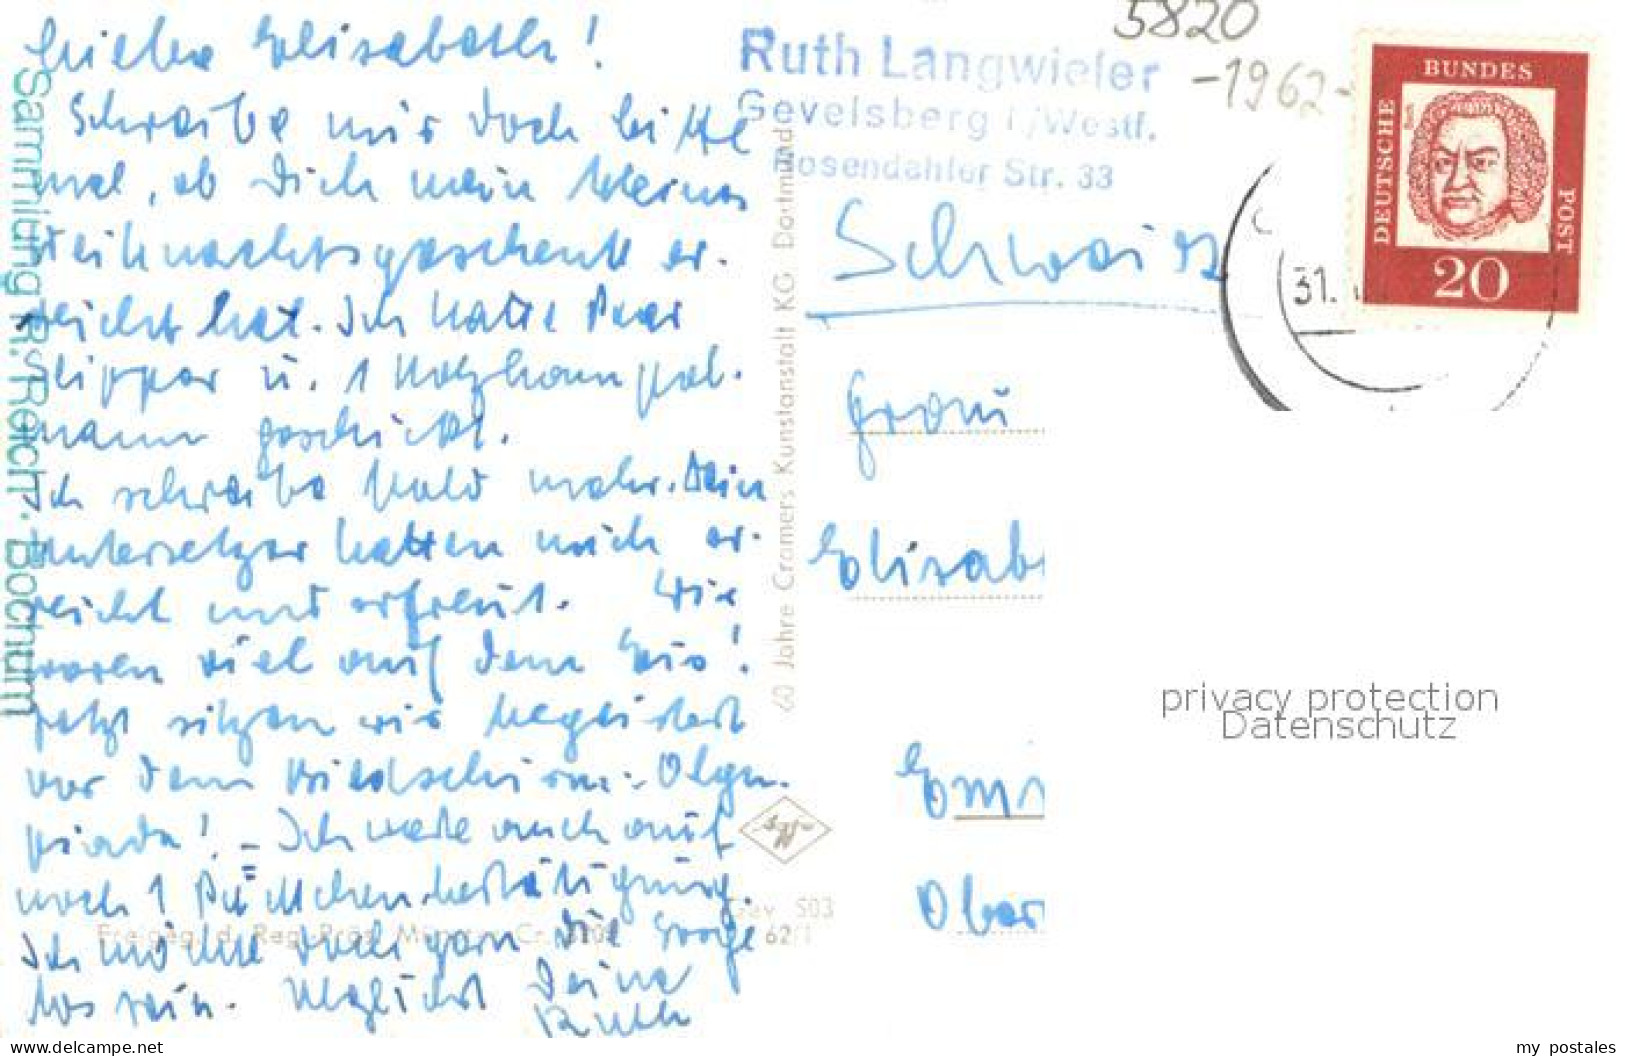 Liebe Elisabeth!
Schreibe mir doch bitte
mal, ob Dich mein kleines
Weihnachtsgeschenk er-
reicht hat. Ich hatte Paar
Slipper u. 1 Holzhampel-
mann geschickt.
Ich schreibe bald mehr. Dein
Untersetzer hatten mich er-
reicht und erfreut. Wir
waren viel auf dem Eis!
Jetzt sitzen wir begeistert
vor dem Bildschirm: Olym-
piade! - Ich warte auch auf
noch 1 Päckchenbestätigung.
Ich möchte doch gern die Sorge
los sein. Herzlichst Deine
Ruth
Sammlung R. Reich. Bochum
60 Jahre Cramers Kunstanstalt KG Dortmund
Freigeg. d. Reg. Präs. Münster
Gev 503
62/1
5820
-1962-
Ruth Langwieler
Gevelsberg i/Westf.
Rosendahler Str. 33
Schweiz
DEUTSCHE BUNDES POST
20
31.
Elisab
Ober
privacy protection
Datenschutz
www.delcampe.net
my_postales